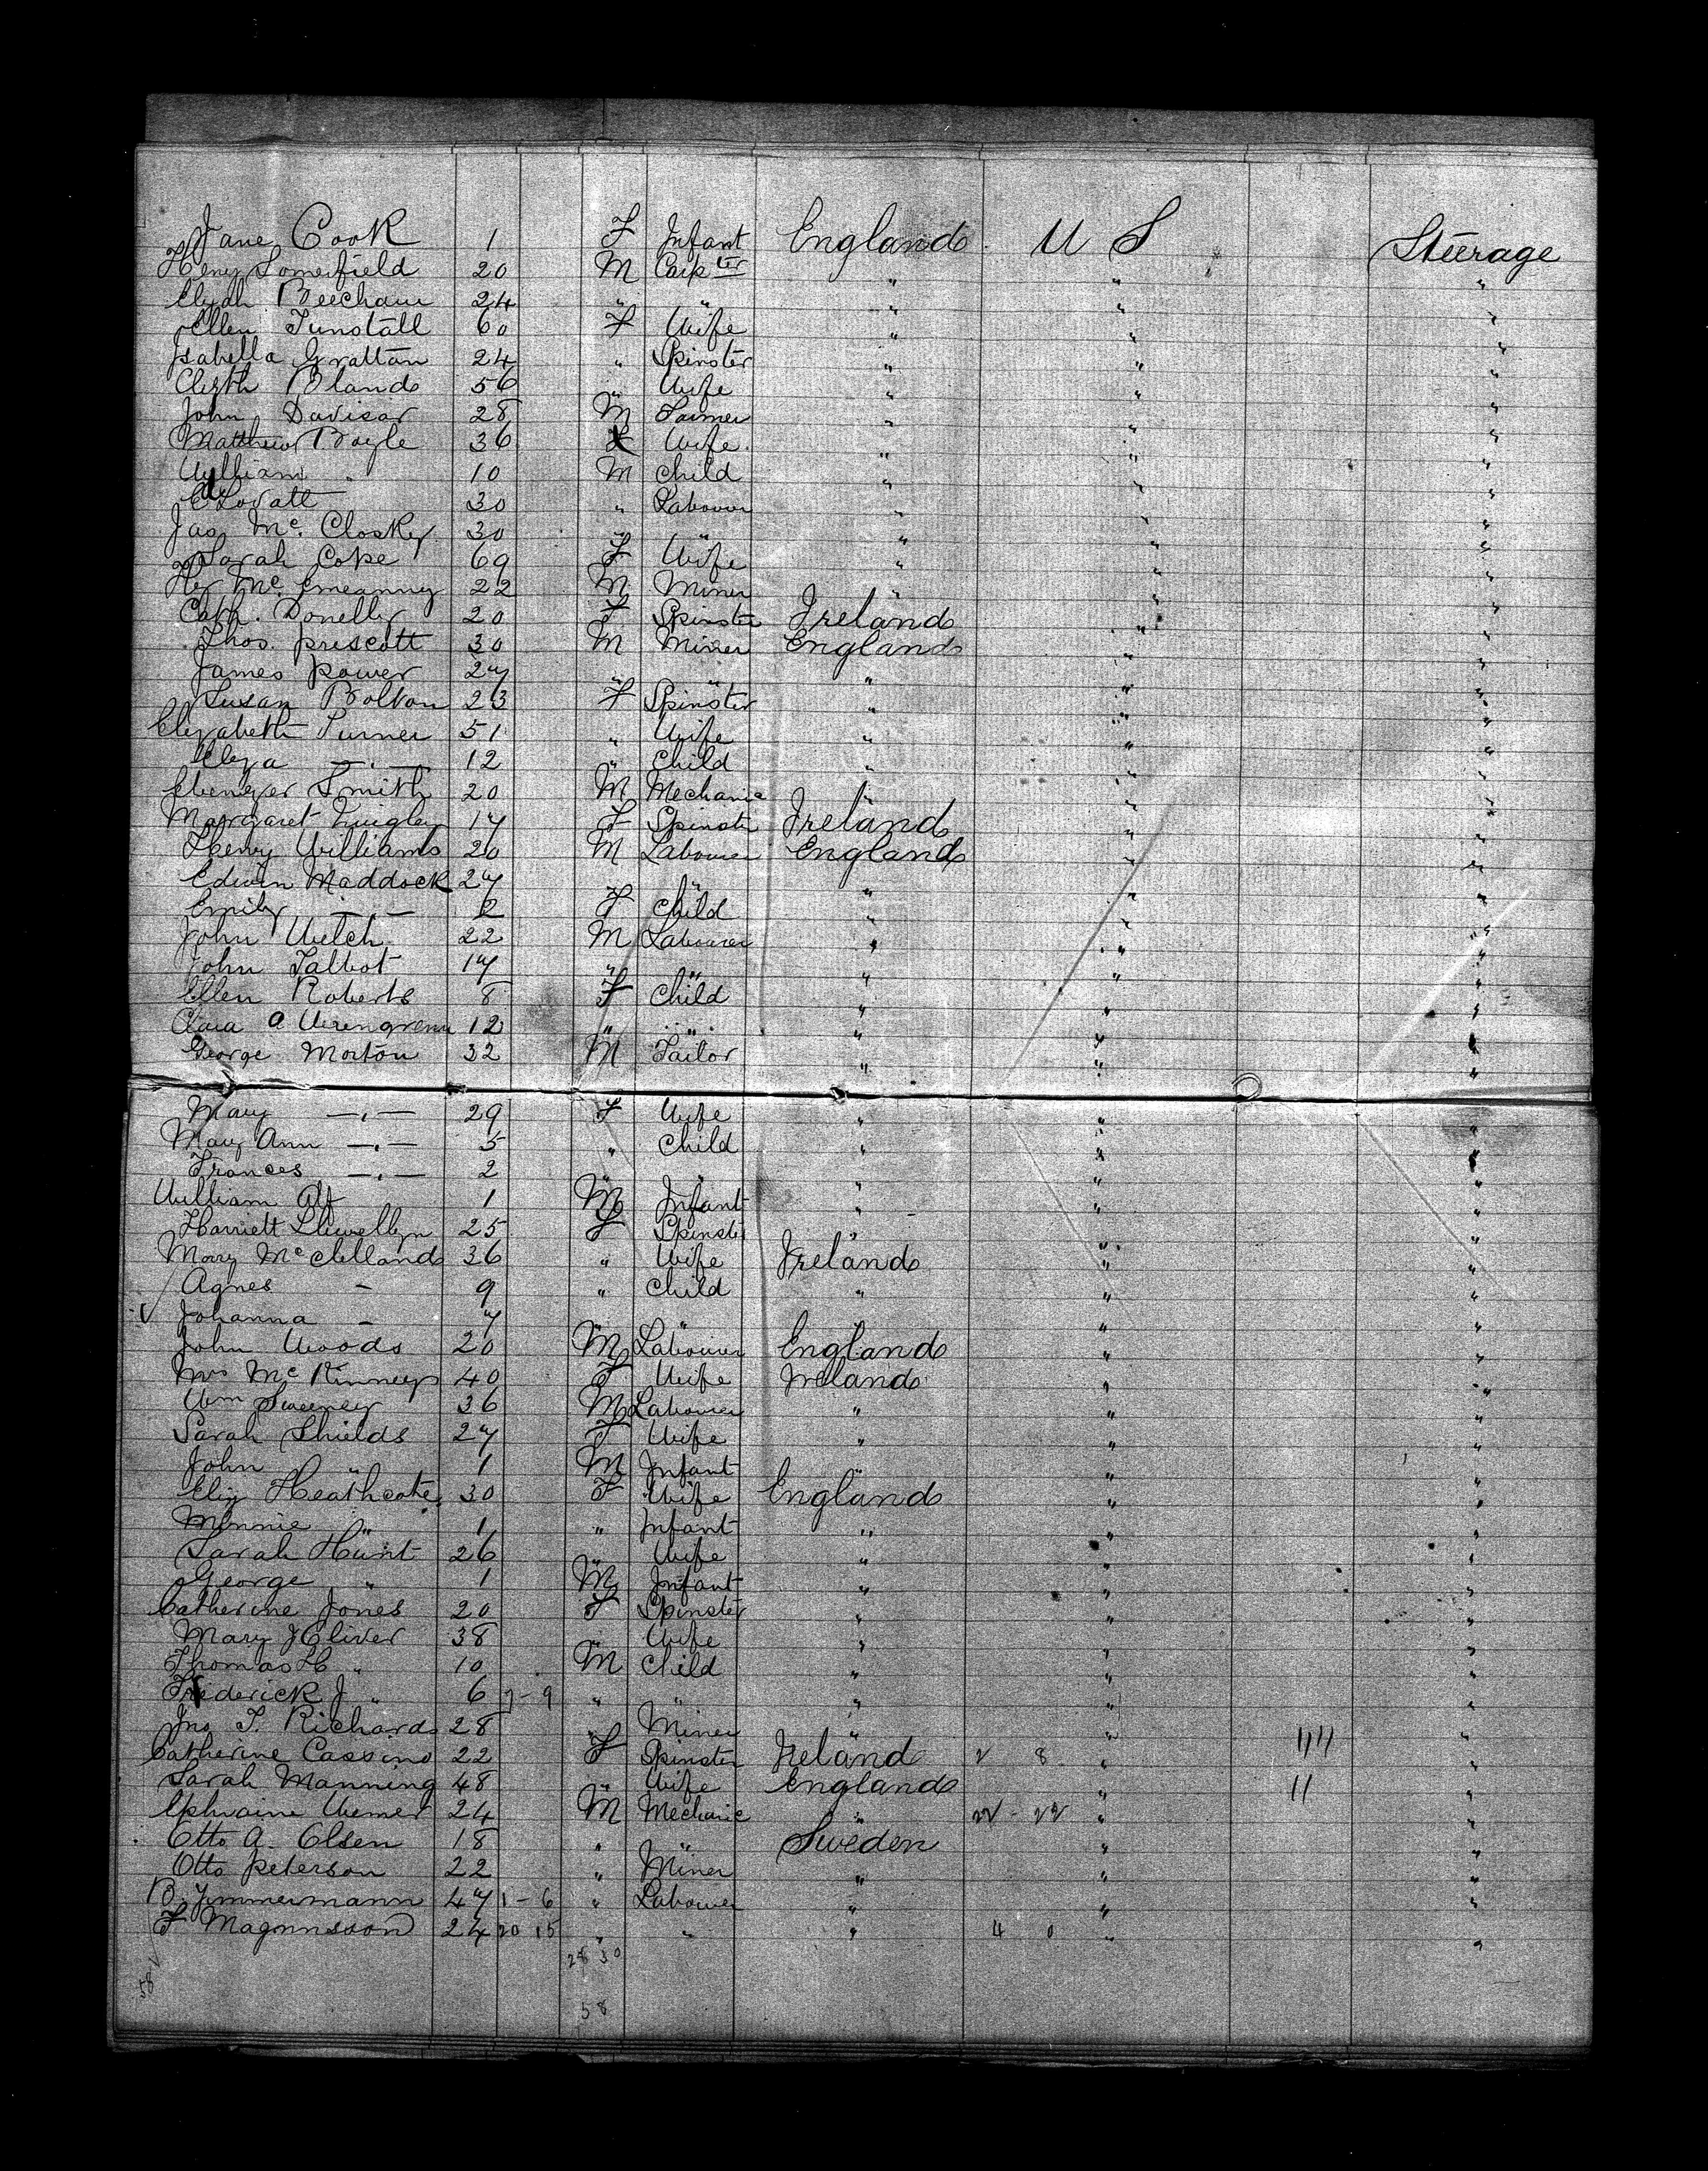 Jane Cook 1 F Infant England U S Steerage
Henry Somerfield 20 M Carpter " " "
Elijah Beecham 24 " " " " "
Ellen Tunstall 60 F Wife " " "
Isabella Grattan 24 " Spinster " " "
Elizth Bland 56 " Wife " " "
John Davisar 28 M Farmer " " "
Matthew Boyle 36 Wife " " "
William " 10 M Child " " "
Lovatt 30 " Labourer " " "
Jas Mc. Closkey 30 " " " " "
Sarah Cope 69 F Wife " " "
22 M Miner " " "
Cath. Donelly 20 F Spinster Ireland " "
Thos. Prescott 30 M Miner England " "
James Power 27 " " " " "
Susan Bolton 23 F Spinster " " "
Elizabeth Turner 51 " Wife " " "
Eliza —"— 12 " Child " " "
Ebenezer Smith 20 M Mechanic " " "
Margaret Quigley 17 F Spinster Ireland " "
Henry Williams 20 M Labourer England " "
Edwin Maddock 27 " " " " "
Emily —"— 2 F Child " " "
John Welch 22 M Labourer " " "
John Talbot 17 " " " " "
Ellen Roberts 8 F Child " " "
Clara A 12 " " " " "
George Morton 32 M Tailor " " "
Mary —"— 29 F Wife " " "
Mary Ann —"— 5 " Child " " "
Frances —"— 2 " " " " "
William Alf 1 M Infant " " "
Harriett Llewellyn 25 F Spinster " " "
Mary McClelland 36 " Wife Ireland " "
Agnes - 9 " Child " " "
Johanna - 7 " " " " "
John Woods 20 M Labourer England " "
Mrs McKinney 40 F Wife Ireland " "
Wm Sweeney 36 M Labourer " " "
Sarah Shields 27 F Wife " " "
John " 1 M Infant " " "
Eliz Heathcote 30 F Wife England " "
Minnie " 1 " Infant " " "
Sarah Hunt 26 " Wife " " "
George " 1 M Infant " " "
Catherine Jones 20 F Spinster " " "
Mary J Oliver 38 " Wife " " "
Thomas H " 10 M Child " " "
Frederick J " 6 7-9 " " " " "
Jno T. Richards 28 " Miner " " "
Catherine Cassino 22 F Spinster Ireland 2 8 " "
Sarah Manning 48 " Wife England " 11 "
24 M Mechanic " " "
Otto A. Olsen 18 " " Sweden " "
Otto Peterson 22 " Miner " " "
B. Zimmermann 47 1-6 " Labourer " " "
F Magnusson 24 20 15 " " " 4 0 " "
28 30
58
58